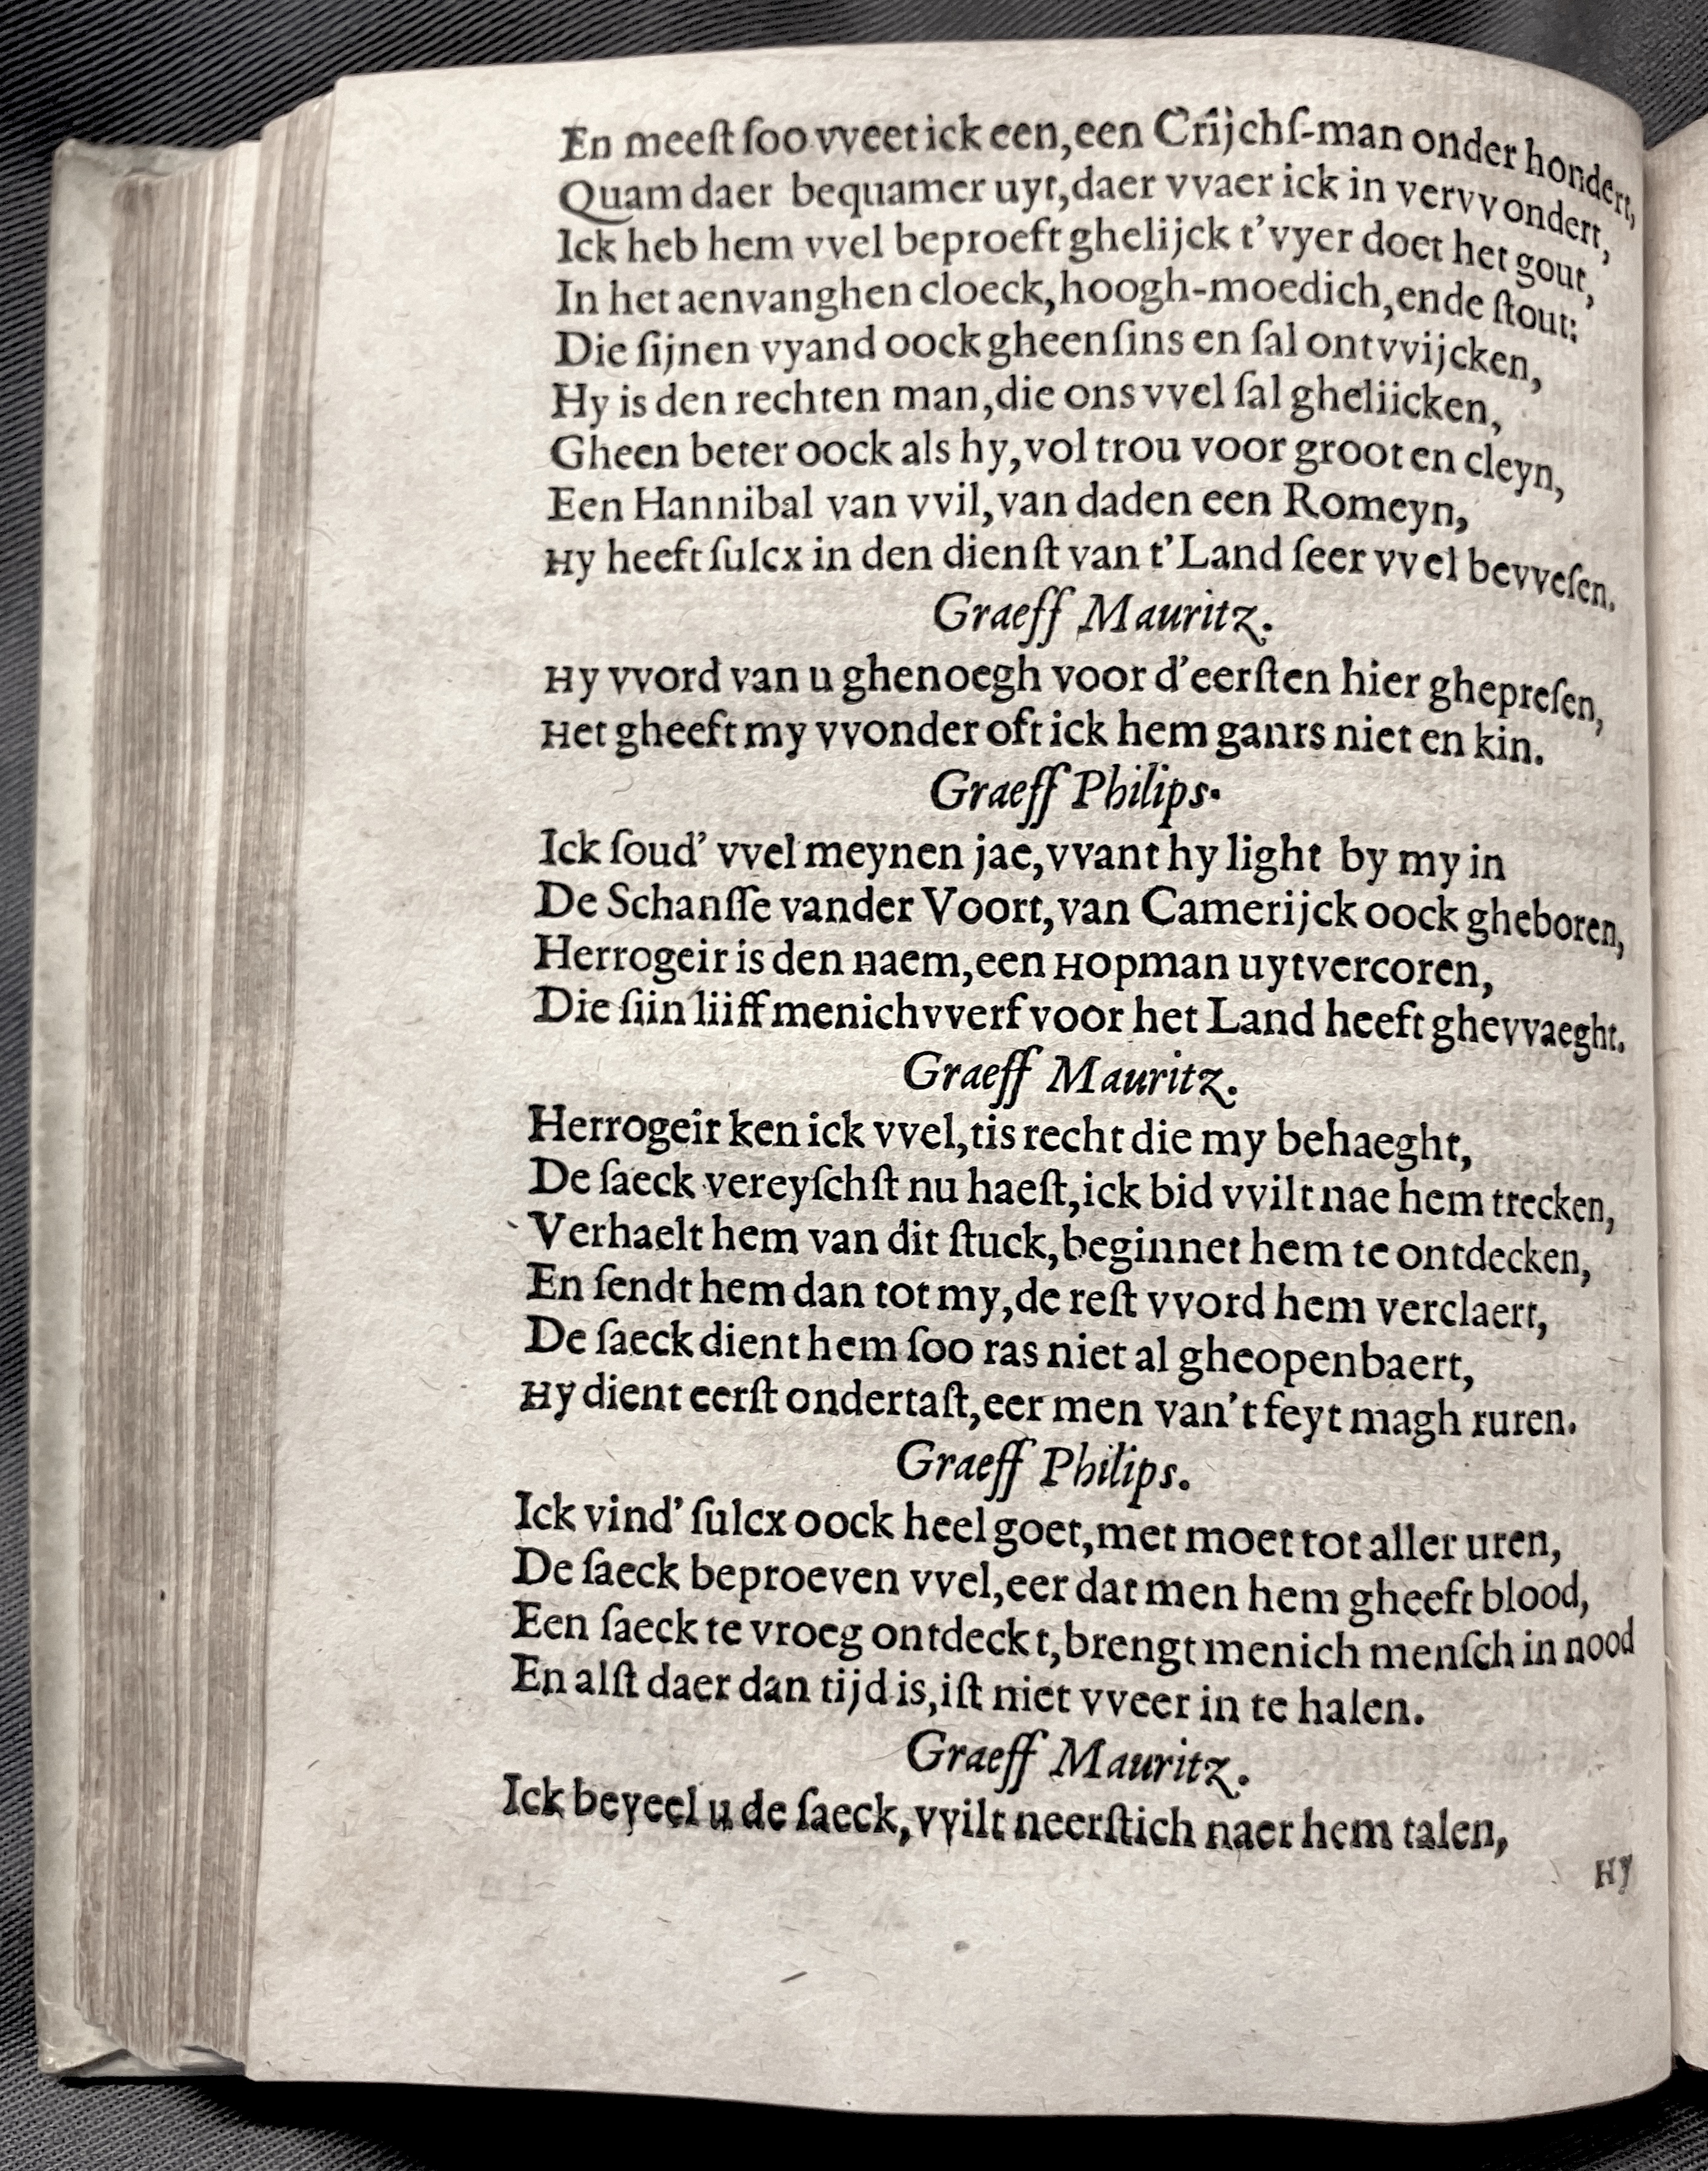 En meeſt ſoo vveet ick een, een Crijchſ-man onder hondert,
Quam daer bequamer uyt, daer vvaer ick in vervvondert,
Ick heb hem vvel beproeft ghelijck t'vyer doet het gout,
In het aenvanghen cloeck, hoogh-moedich, ende ſtout:
Die ſijnen vyand oock gheenſins en ſal ontvvijcken,
Hy is den rechten man, die ons vvel ſal gheliicken,
Gheen beter oock als hy, vol trou voor groot en cleyn,
Een Hannibal van vvil, van daden een Romeyn,
Hy heeft ſulcx in den dienſt van t'Land ſeer vvel bevveſen.
Graeff Mauritz.
Hy vvord van u ghenoegh voor d'eerſten hier ghepreſen,
Het gheeft my vvonder oft ick hem gants niet en kin.
Graeff Philips.
Ick ſoud' vvel meynen jae, vvant hy light by my in
De Schanſſe vander Voort, van Camerijck oock gheboren,
Herrogeir is den naem, een Hopman uytvercoren,
Die ſiin liiff menichvverf voor het Land heeft ghevvaeght.
Graeff Mauritz.
Herrogeir ken ick vvel, tis recht die my behaeght,
De ſaeck vereyſchſt nu haeſt, ick bid vvilt nae hem trecken,
Verhaelt hem van dit ſtuck, beginnet hem te ontdecken,
En ſendt hem dan tot my, de reſt vvord hem verclaert,
De ſaeck dient hem ſoo ras niet al gheopenbaert,
Hy dient eerſt ondertaſt, eer men van't feyt magh ruren.
Graeff Philips.
Ick vind' ſulcx oock heel goet, met moet tot aller uren,
De ſaeck beproeven vvel, eer dat men hem gheeft blood,
Een ſaeck te vroeg ontdeckt, brengt menich menſch in nood
En alſt daer dan tijd is, iſt niet vveer in te halen.
Graeff Mauritz.
Ick beveel u de ſaeck, vvilt neerſtich naer hem talen,
Hy